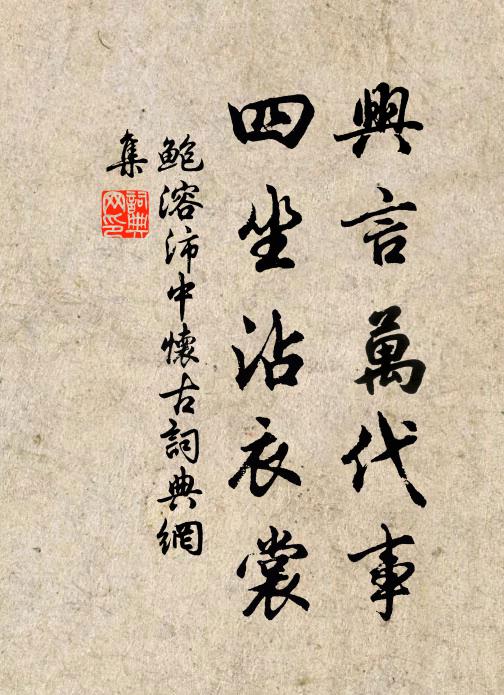 興言萬代事
四坐沾衣裳
鮑溶沛中懷古詞典網
集
詞典
网印